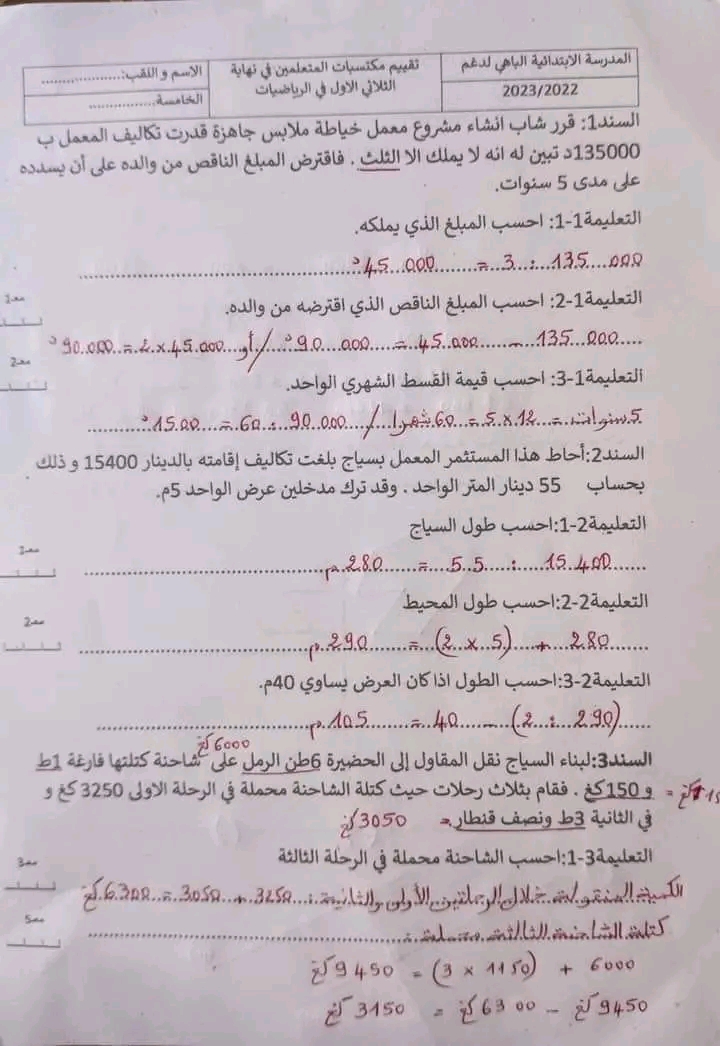 المدرسة الابتدائية الباهي لدغم
2023/2022
تقييم مكتسبات المتعلمين في نهاية
الثلاثي الاول في الرياضيات
الاسم و اللقب:....................
الخامسة....................
السند1: قرر شاب انشاء مشروع معمل خياطة ملابس جاهزة قدرت تكاليف المعمل ب
135000د تبين له انه لا يملك الا الثلث . فاقترض المبلغ الناقص من والده على أن يسدده
على مدى 5 سنوات.
التعليمة1-1: احسب المبلغ الذي يملكه.
135 000 : 3 = 45 000د
معـ1
التعليمة1-2: احسب المبلغ الناقص الذي اقترضه من والده.
135 000 - 45 000 = 90 000د / أو 45 000 × 2 = 90 000د
معـ2
التعليمة1-3: احسب قيمة القسط الشهري الواحد.
5 سنوات = 12 × 5 = 60 شهرا / 90 000 : 60 = 1500د
السند2:أحاط هذا المستثمر المعمل بسياج بلغت تكاليف إقامته بالدينار 15400 و ذلك
بحساب 55 دينار المتر الواحد . وقد ترك مدخلين عرض الواحد 5م.
التعليمة2-1:احسب طول السياج
15 400 : 55 = 280م
التعليمة2-2:احسب طول المحيط
معـ2
280 + (5 × 2) = 290م
التعليمة2-3:احسب الطول اذا كان العرض يساوي 40م.
(290 : 2) - 40 = 105م
6000 كغ
السند3:لبناء السياج نقل المقاول إلى الحضيرة 6طن الرمل على شاحنة كتلتها فارغة 1ط
و 150كغ . فقام بثلاث رحلات حيث كتلة الشاحنة محملة في الرحلة الاولى 3250 كغ و
في الثانية 3ط ونصف قنطار = 3050 كغ
التعليمة3-1:احسب الشاحنة محملة في الرحلة الثالثة
معـ3
الكمية المنقولة خلال الرحلتين الأولى والثانية : 3250 + 3050 = 6300 كغ
معـ5
كتلة الشاحنة الثالثة محملة :
6000 + (1150 × 3) = 9450 كغ
9450 كغ - 6300 كغ = 3150 كغ